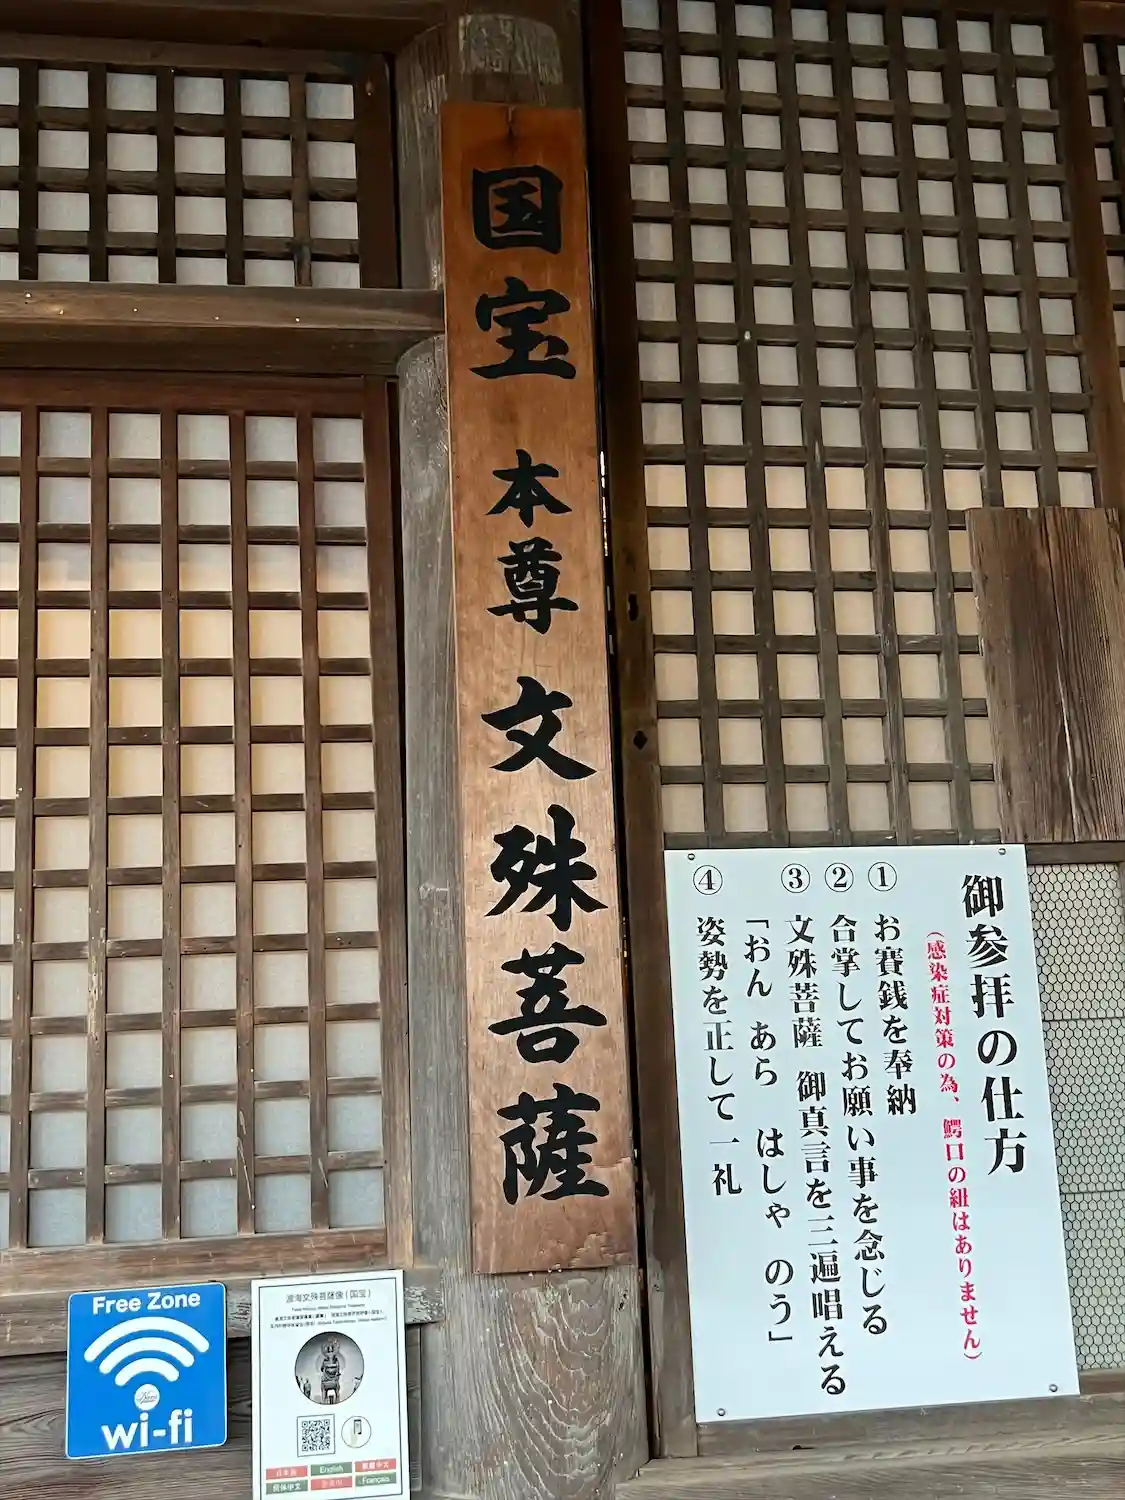 国宝 本尊 文殊菩薩
御参拝の仕方
(感染症対策の為、鰐口の紐はありません)
① お賽銭を奉納
② 合掌してお願い事を念じる
③ 文殊菩薩 御真言を三遍唱える
「おん あら はしゃ のう」
④ 姿勢を正して一礼
Free Zone
wi-fi
渡海文殊菩薩像(国宝)
日本語
English
繁體中文
简体中文
한국어
Français